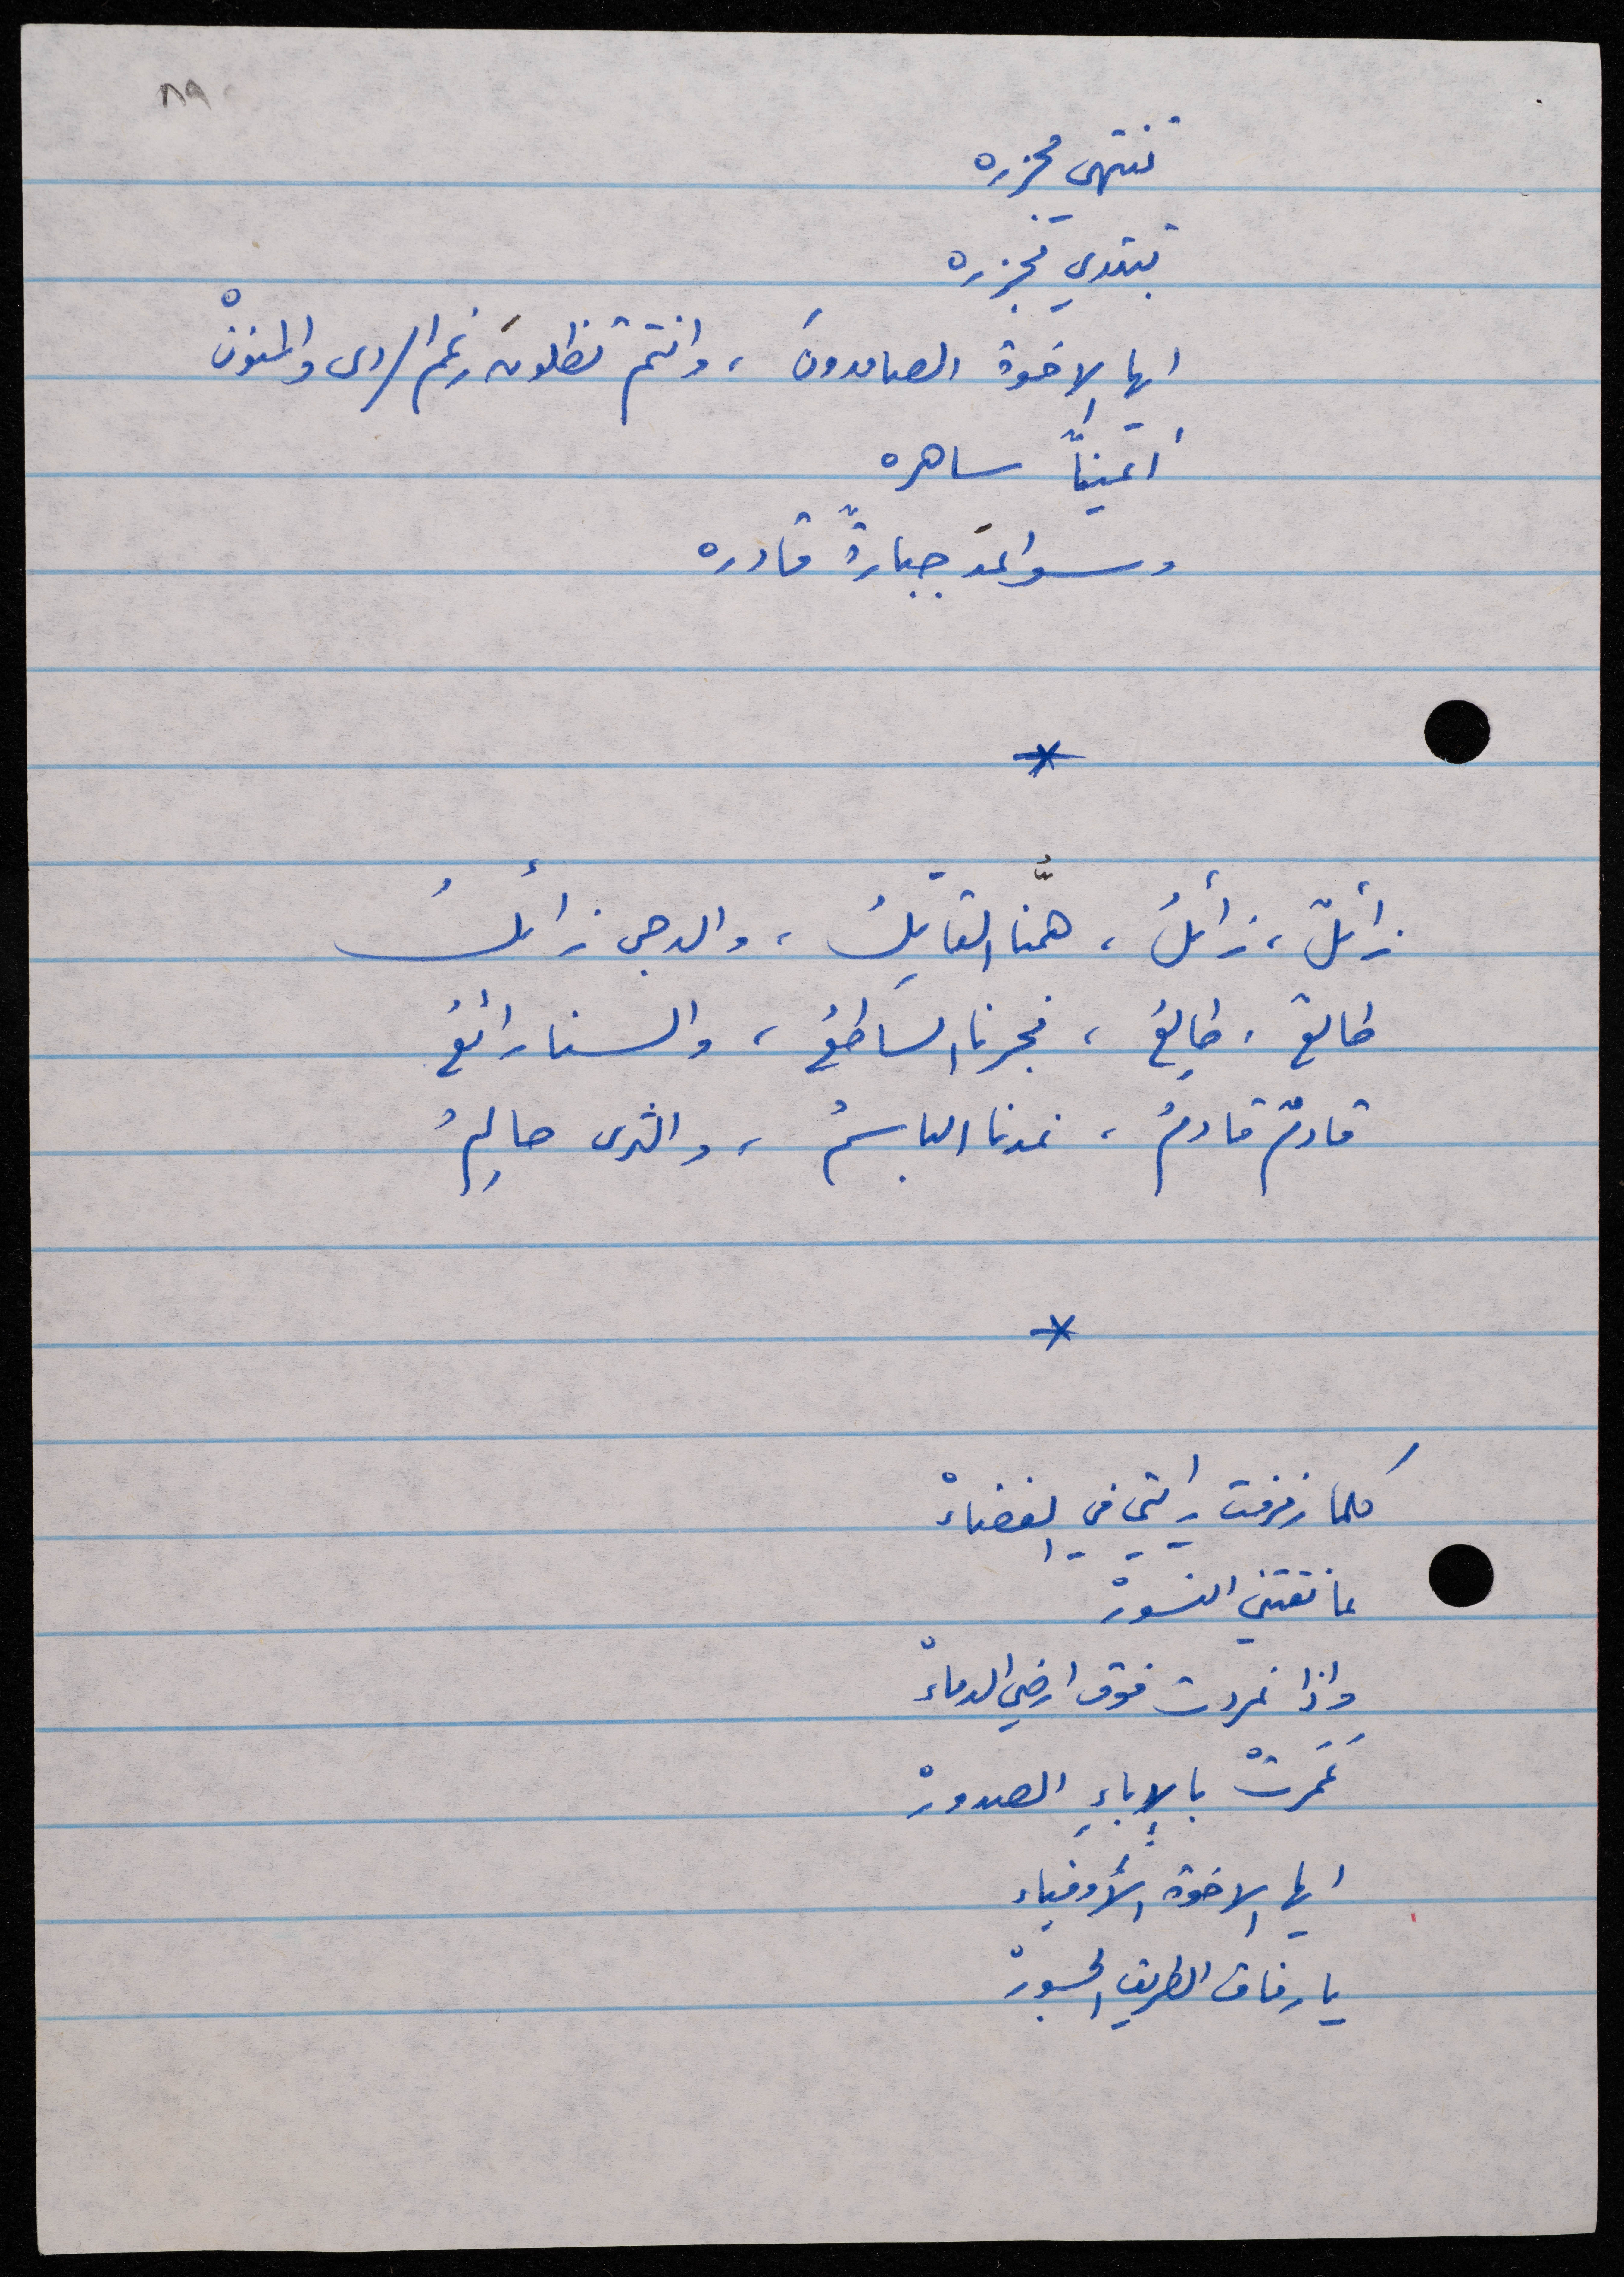 ٨٩
تنتهي مجزره
تبتدي مجزره
ايها الإخوة الصامدونَ ، وانتم تظلونَ رغم الردى والمنونْ
أعيناً ساهره
وسواعدَ جبارةً قادره
*
زائلٌ ، زائلُ ، همُّنا القاتِلُ ، والدجى زائلُ
طالعٌ ، طالِعُ ، فجرنا الساطعُ ، والسنا رائعُ
قادمٌ قادمُ ، غدنا الباسمُ ، والثرى حالِمُ
*
كلما زفزفت رايتي في الفضاءْ
عانقتني النسورْ
واذا غردت فوق ارضي الدماءْ
عَمَرَتْ بالإباءِ الصدورْ
ايها الإخوة الأوفياء
يا رفاق الطريق الجسورْ